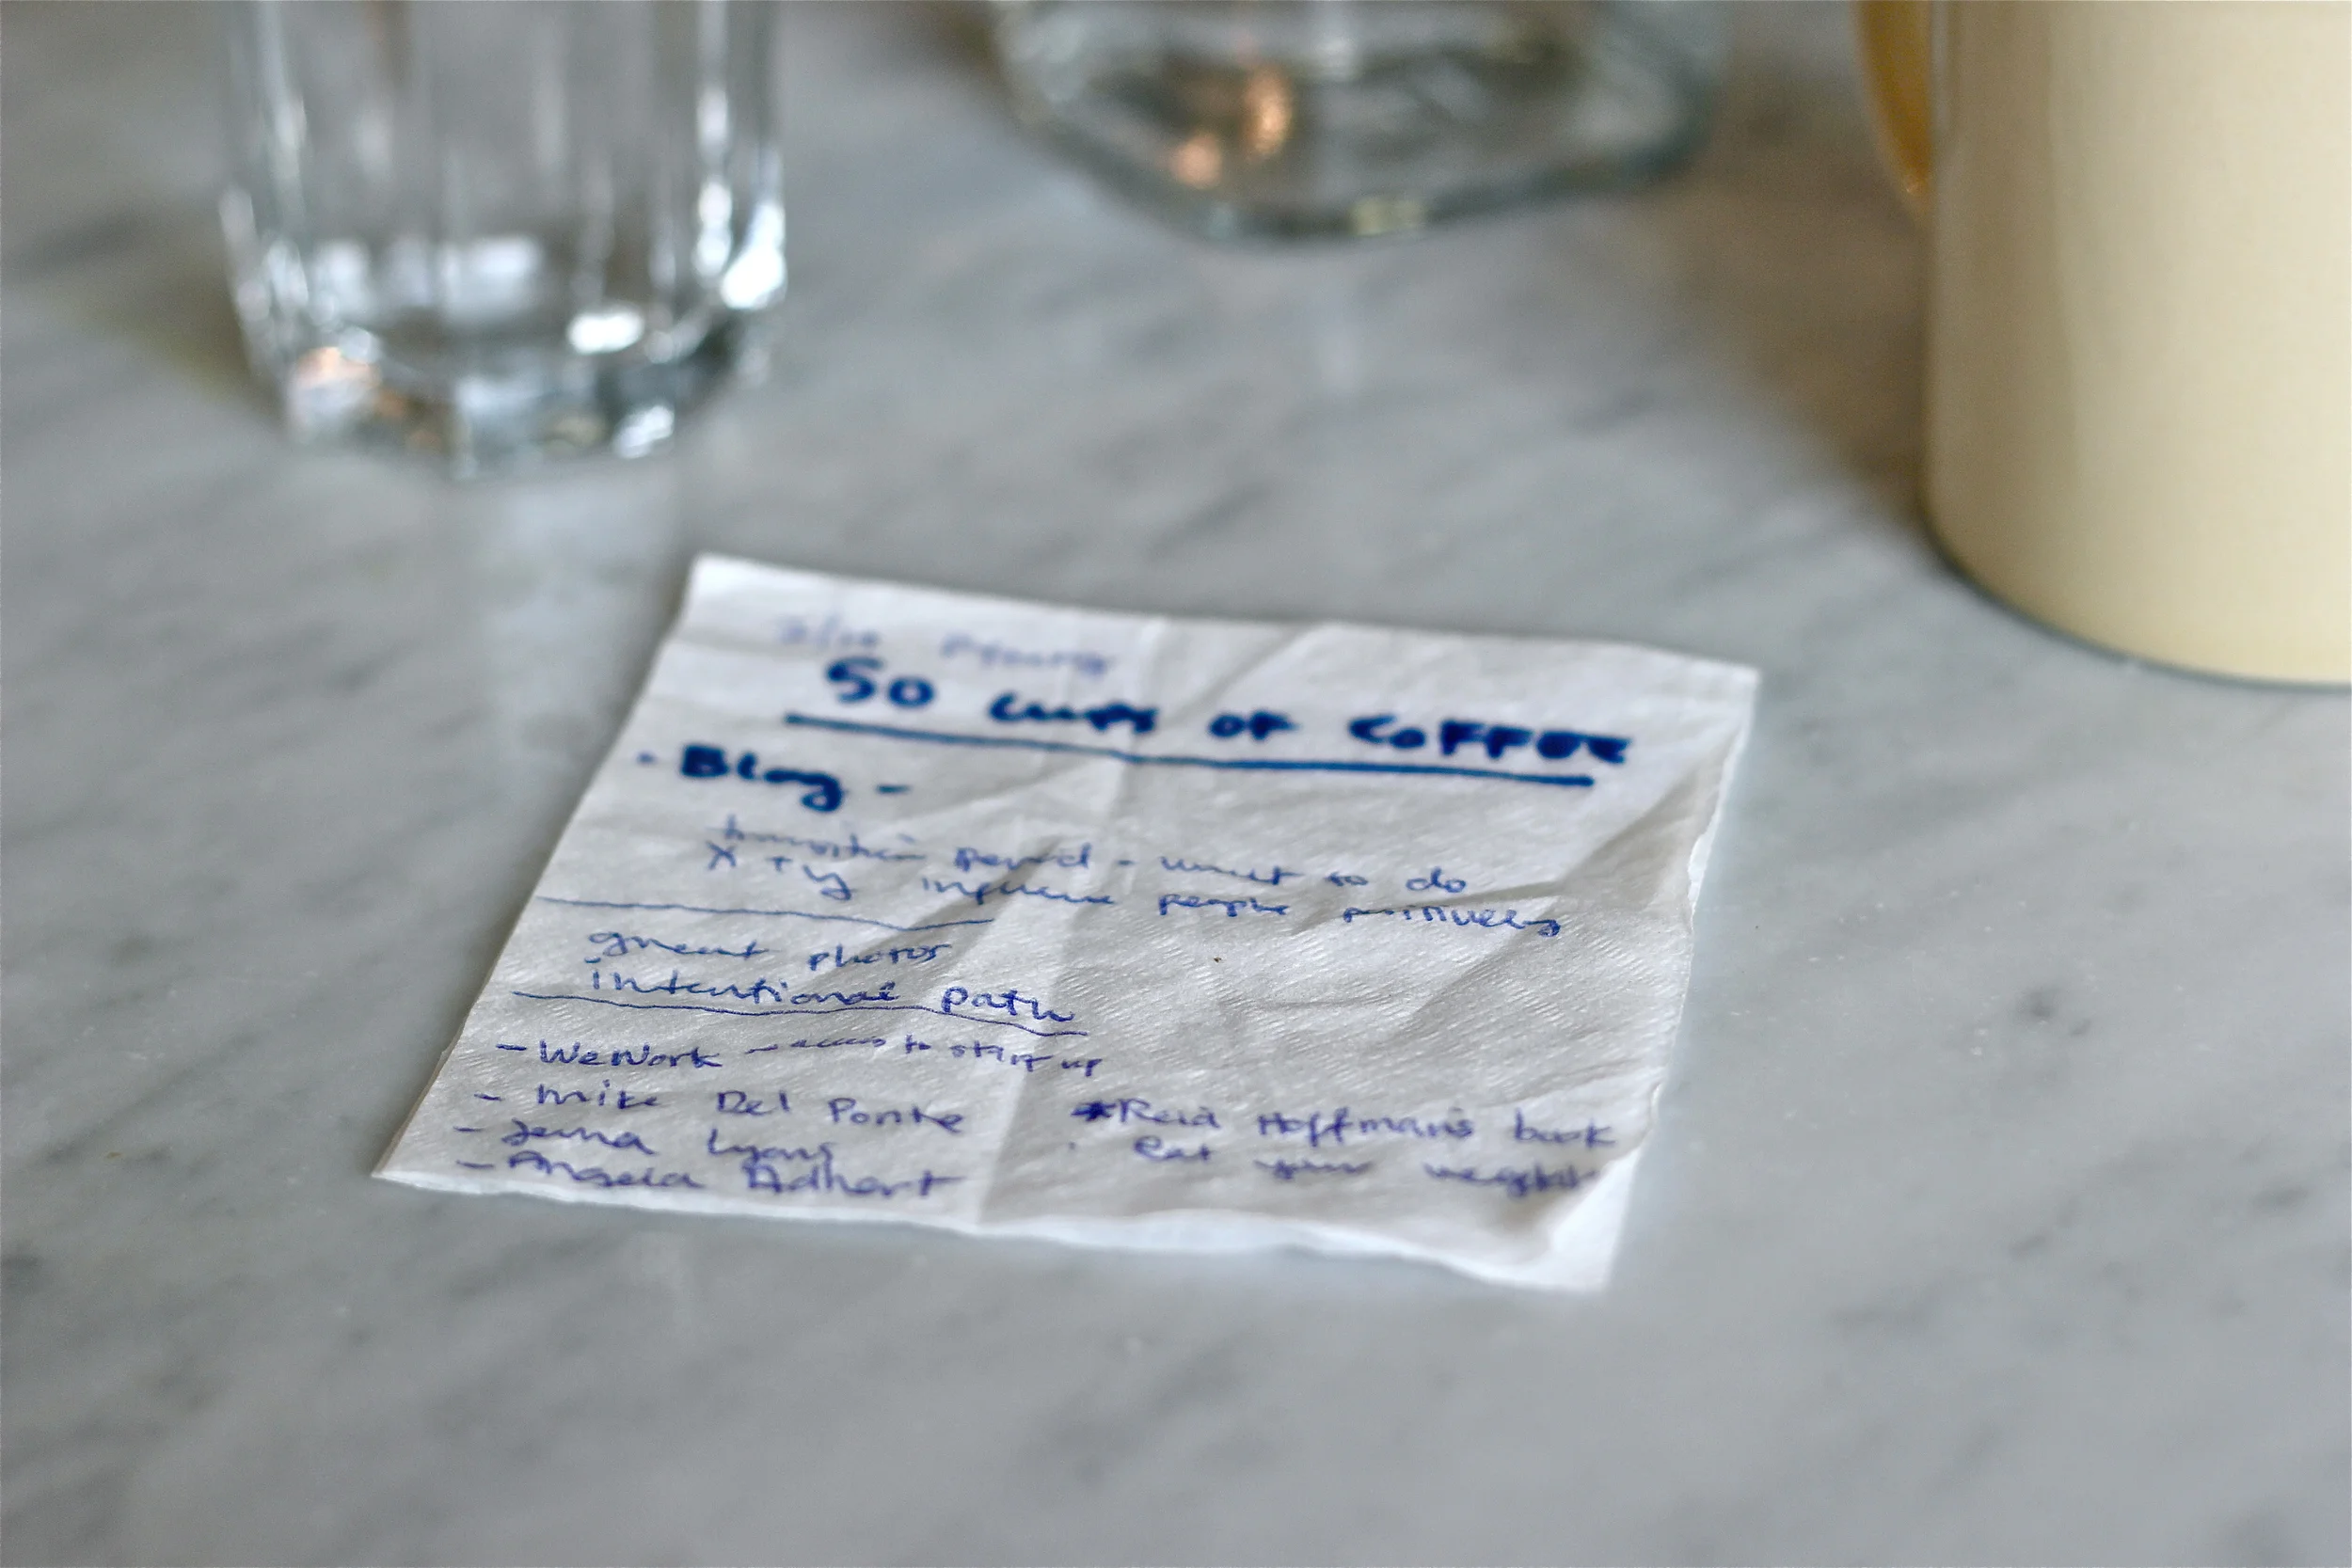 50 cups OF COFFEE
- Blog -
period - want to do
X try influence people positively
great photos
intentional path
- WeWork - access to start up
- Mike Del Ponte
- Jenna Lyons
- Angela Adhart
*Reid Hoffman's book
Eat your